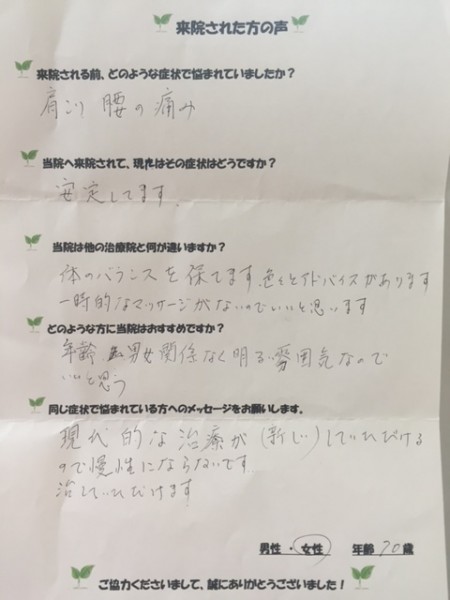 来院された方の声
来院される前、どのような症状で悩まれていましたか?
肩こり 腰の痛み
当院へ来院されて、現在はその症状はどうですか?
安定してます。
当院は他の治療院と何が違いますか?
体のバランスを保てます 色々とアドバイスがあります
一時的なマッサージがないのでいいと思います
どのような方に当院はおすすめですか?
年齢 男女関係なく明るい雰囲気なので
いいと思う
同じ症状で悩まれている方へのメッセージをお願いします。
現代的な治療が(新しい)していただける
ので慢性にならないです
治していただけます
男性・女性 年齢 70 歳
ご協力くださいまして、誠にありがとうございました!